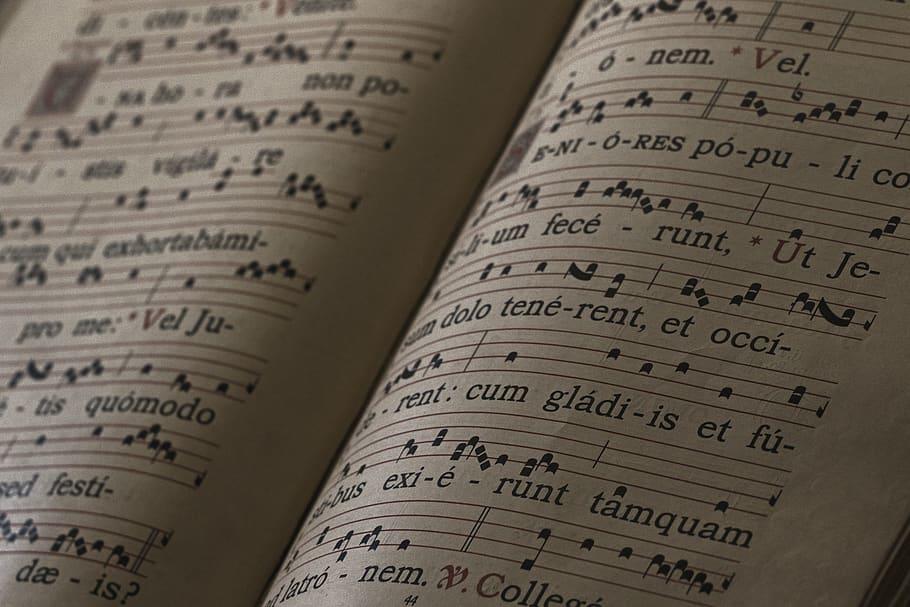 di - cén-tes: * Vénite.
U - NA ho - ra non po-
tu-í - stis vigilá - re
cum qui exhortabámi-
pro me: * Vel Ju-
tis quómodo
sed festí-
dæ - is?
ó - nem. * Vel.
E-NI-Ó-RES pó-pu - li co
li-um fecé - runt, * Ut Je-
dolo tené-rent, et occí-
rent: cum gládi-is et fú-
bus exi-é - runt tamquam
ad latró - nem. ℣. Collegé
44